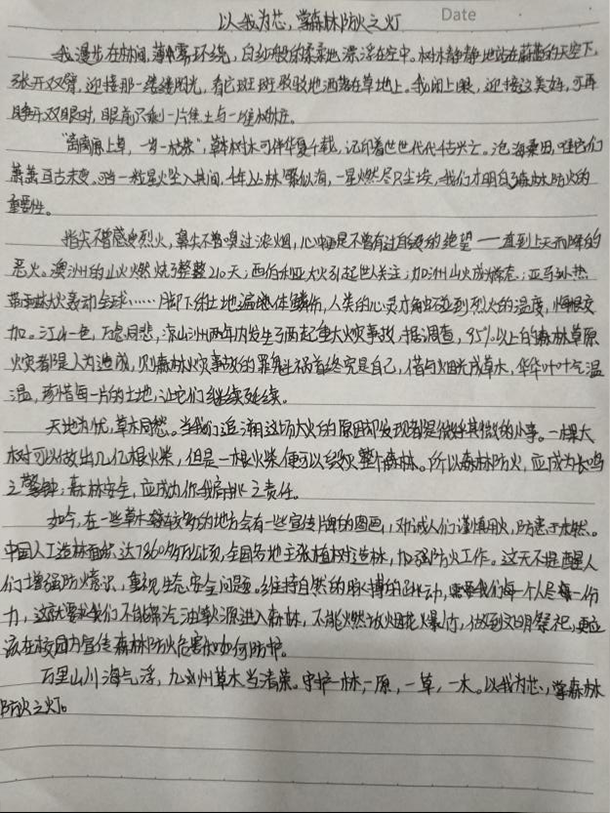 以我为芯，掌森林防火之灯
Date
我漫步在林间，薄雾环绕，白纱般的柔柔地漂浮在空中。树木静静地站在蔚蓝的天空下，
张开双臂，迎接那一缕缕阳光，看它斑斑驳驳地洒落在草地上。我闭上眼，迎接这美好，可再
睁开双眼时，眼前只剩一片焦土与一堆树桩。
“离离原上草，一岁一枯荣”，草本树木可伴华夏千载，记印着世世代代千古兴亡。沧海桑田，唯它们
萧萧亘古未变。当一粒星火坠入其间，千年丛林繁似海，一星火燃尽只尘埃，我们才明白了森林防火的
重要性。
指尖不曾感受烈火，鼻尖不曾嗅过浓烟，心中更是不曾有过自焚的绝望——直到上天而降的
恶火。澳洲的山火燃烧了整整210天；西伯利亚大火引起世人关注；加洲山火成常态；亚马孙热
带雨林大火轰动全球……脚下的土地遍地体鳞伤，人类的心灵才角虫碰到烈火的温度，悔恨交
加。江山一色，万虑同悲，凉山洲两年内发生了两起重大火灾事故，据调查，95%以上的森林草原
火灾都是人为造成，则森林火灾事故的罪魁祸首终究是自己，借目火烟光成草木，华华叶叶气温
温，珍惜每一片的土地，让它们继续延续。
天地为忧，草木同愁。当我们追溯这场大火的原因却发现都是微乎其微的小事。一棵大
树可以做出几亿根火柴，但是一根火柴便可以毁灭整个森林。所以森林防火，应成为长鸣
之警钟；森林安全，应成为你我肩挑之责任。
如今，在一些草木较多的地方会有一些宣传牌的图画，劝诫人们谨慎用火，防患于未然。
中国人工造林面积达7860多万公顷，全国各地主张植树造林，加强防火工作。这无不提醒人
们增强防火意识，重视生态安全问题。维持自然的脉搏的跳动，需要我们每一个人尽一份
力，这就要求我们不能携汽油等火源进入森林，不能燃放烟花爆竹，做到文明祭祀，更应
该在校园内宣传森林防火危害和如何防护。
万里山川海气浮，九州草木当春荣。守护一林，一原，一草，一木。以我为芯，掌森林
防火之灯。